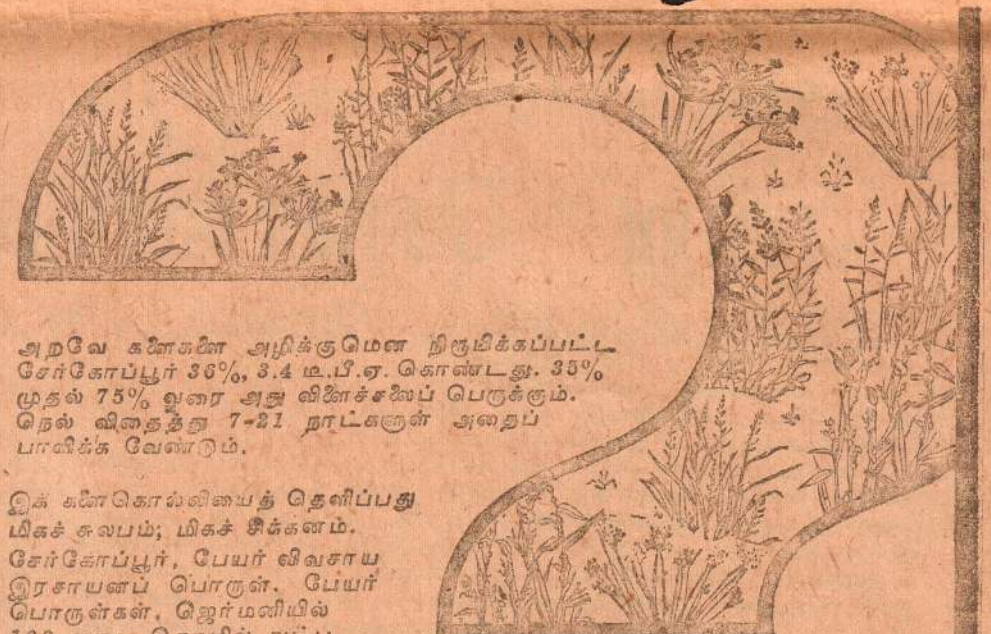 அறவே களைகளை அழிக்குமென நிரூபிக்கப்பட்ட
சேர்கோப்பூர் 36%, 3.4 டீ.பீ.ஏ. கொண்டது. 35%
முதல் 75% வரை அது விளைச்சலைப் பெருக்கும்.
நெல் விதைத்து 7-21 நாட்களுள் அதைப்
பாவிக்க வேண்டும்.
இக் களைகொல்லியைத் தெளிப்பது
மிகச் சுலபம்; மிகச் சிக்கனம்.
சேர்கோப்பூர், பேயர் விவசாய
இரசாயனப் பொருள். பேயர்
பொருள்கள், ஜெர்மனியில்